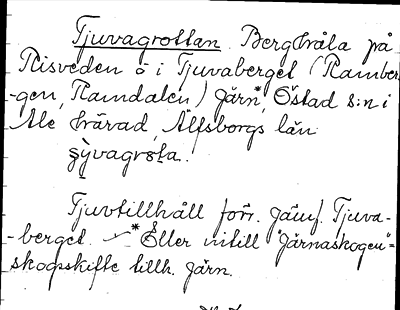 Tjuvagrottan. Berghåla på
Risveden ö i Tjuvaberget (Ramber-
-gen, Ramdalen) Järn*, Östad s:n i
Ale härad, Älfsborgs län
Tjuvtillhåll förr. Jämf. Tjuva-
-berget. *Eller intill "Järnaskogen"=
skogsskifte tillh. Järn.